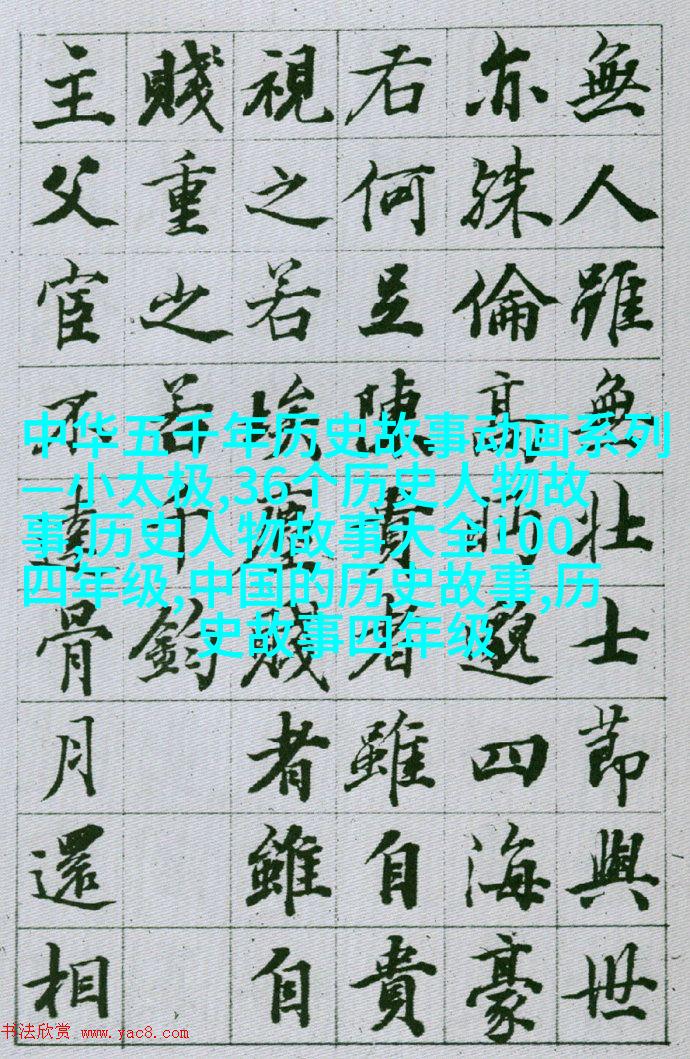 無人雖無壯士節與世
亦殊倫高眄邈四海豪
右何足陳貴者雖自貴
視之若埃塵賤者雖自
賤重之若千鈞
主父宦不達骨月還相
中华五千年历史故事动画系列
—小太极,36个历史人物故
事,历史人物故事大全100
四年级,中国的历史故事,历
史故事四年级
书法欣赏 www.yac8.com